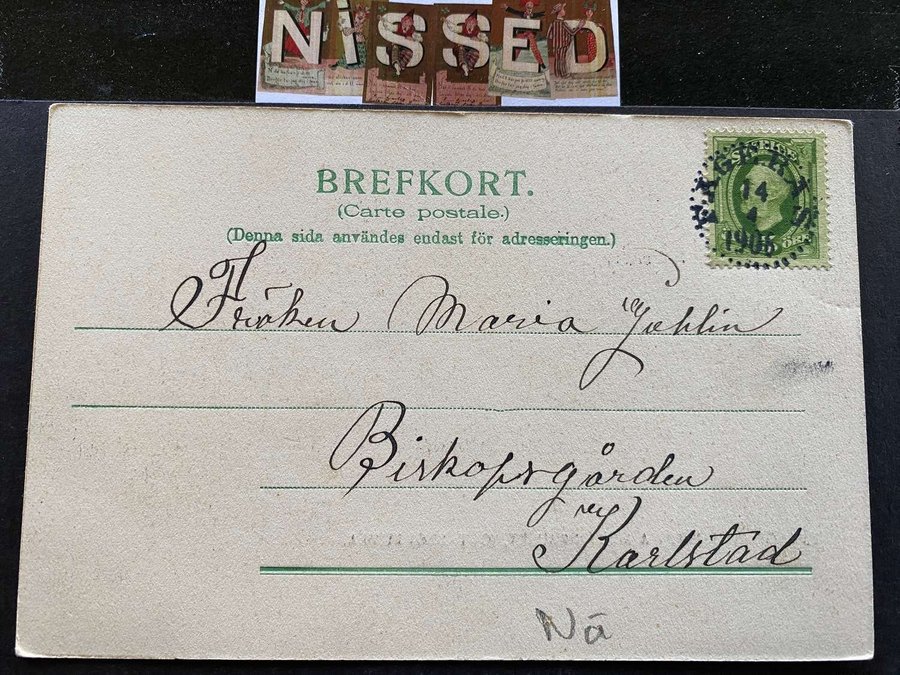 NISSED
BREFKORT.
(Carte postale.)
(Denna sida användes endast för adresseringen.)
14
4
1905
Fröken Maria Johlin
Biskopsgården
Karlstad
Nä